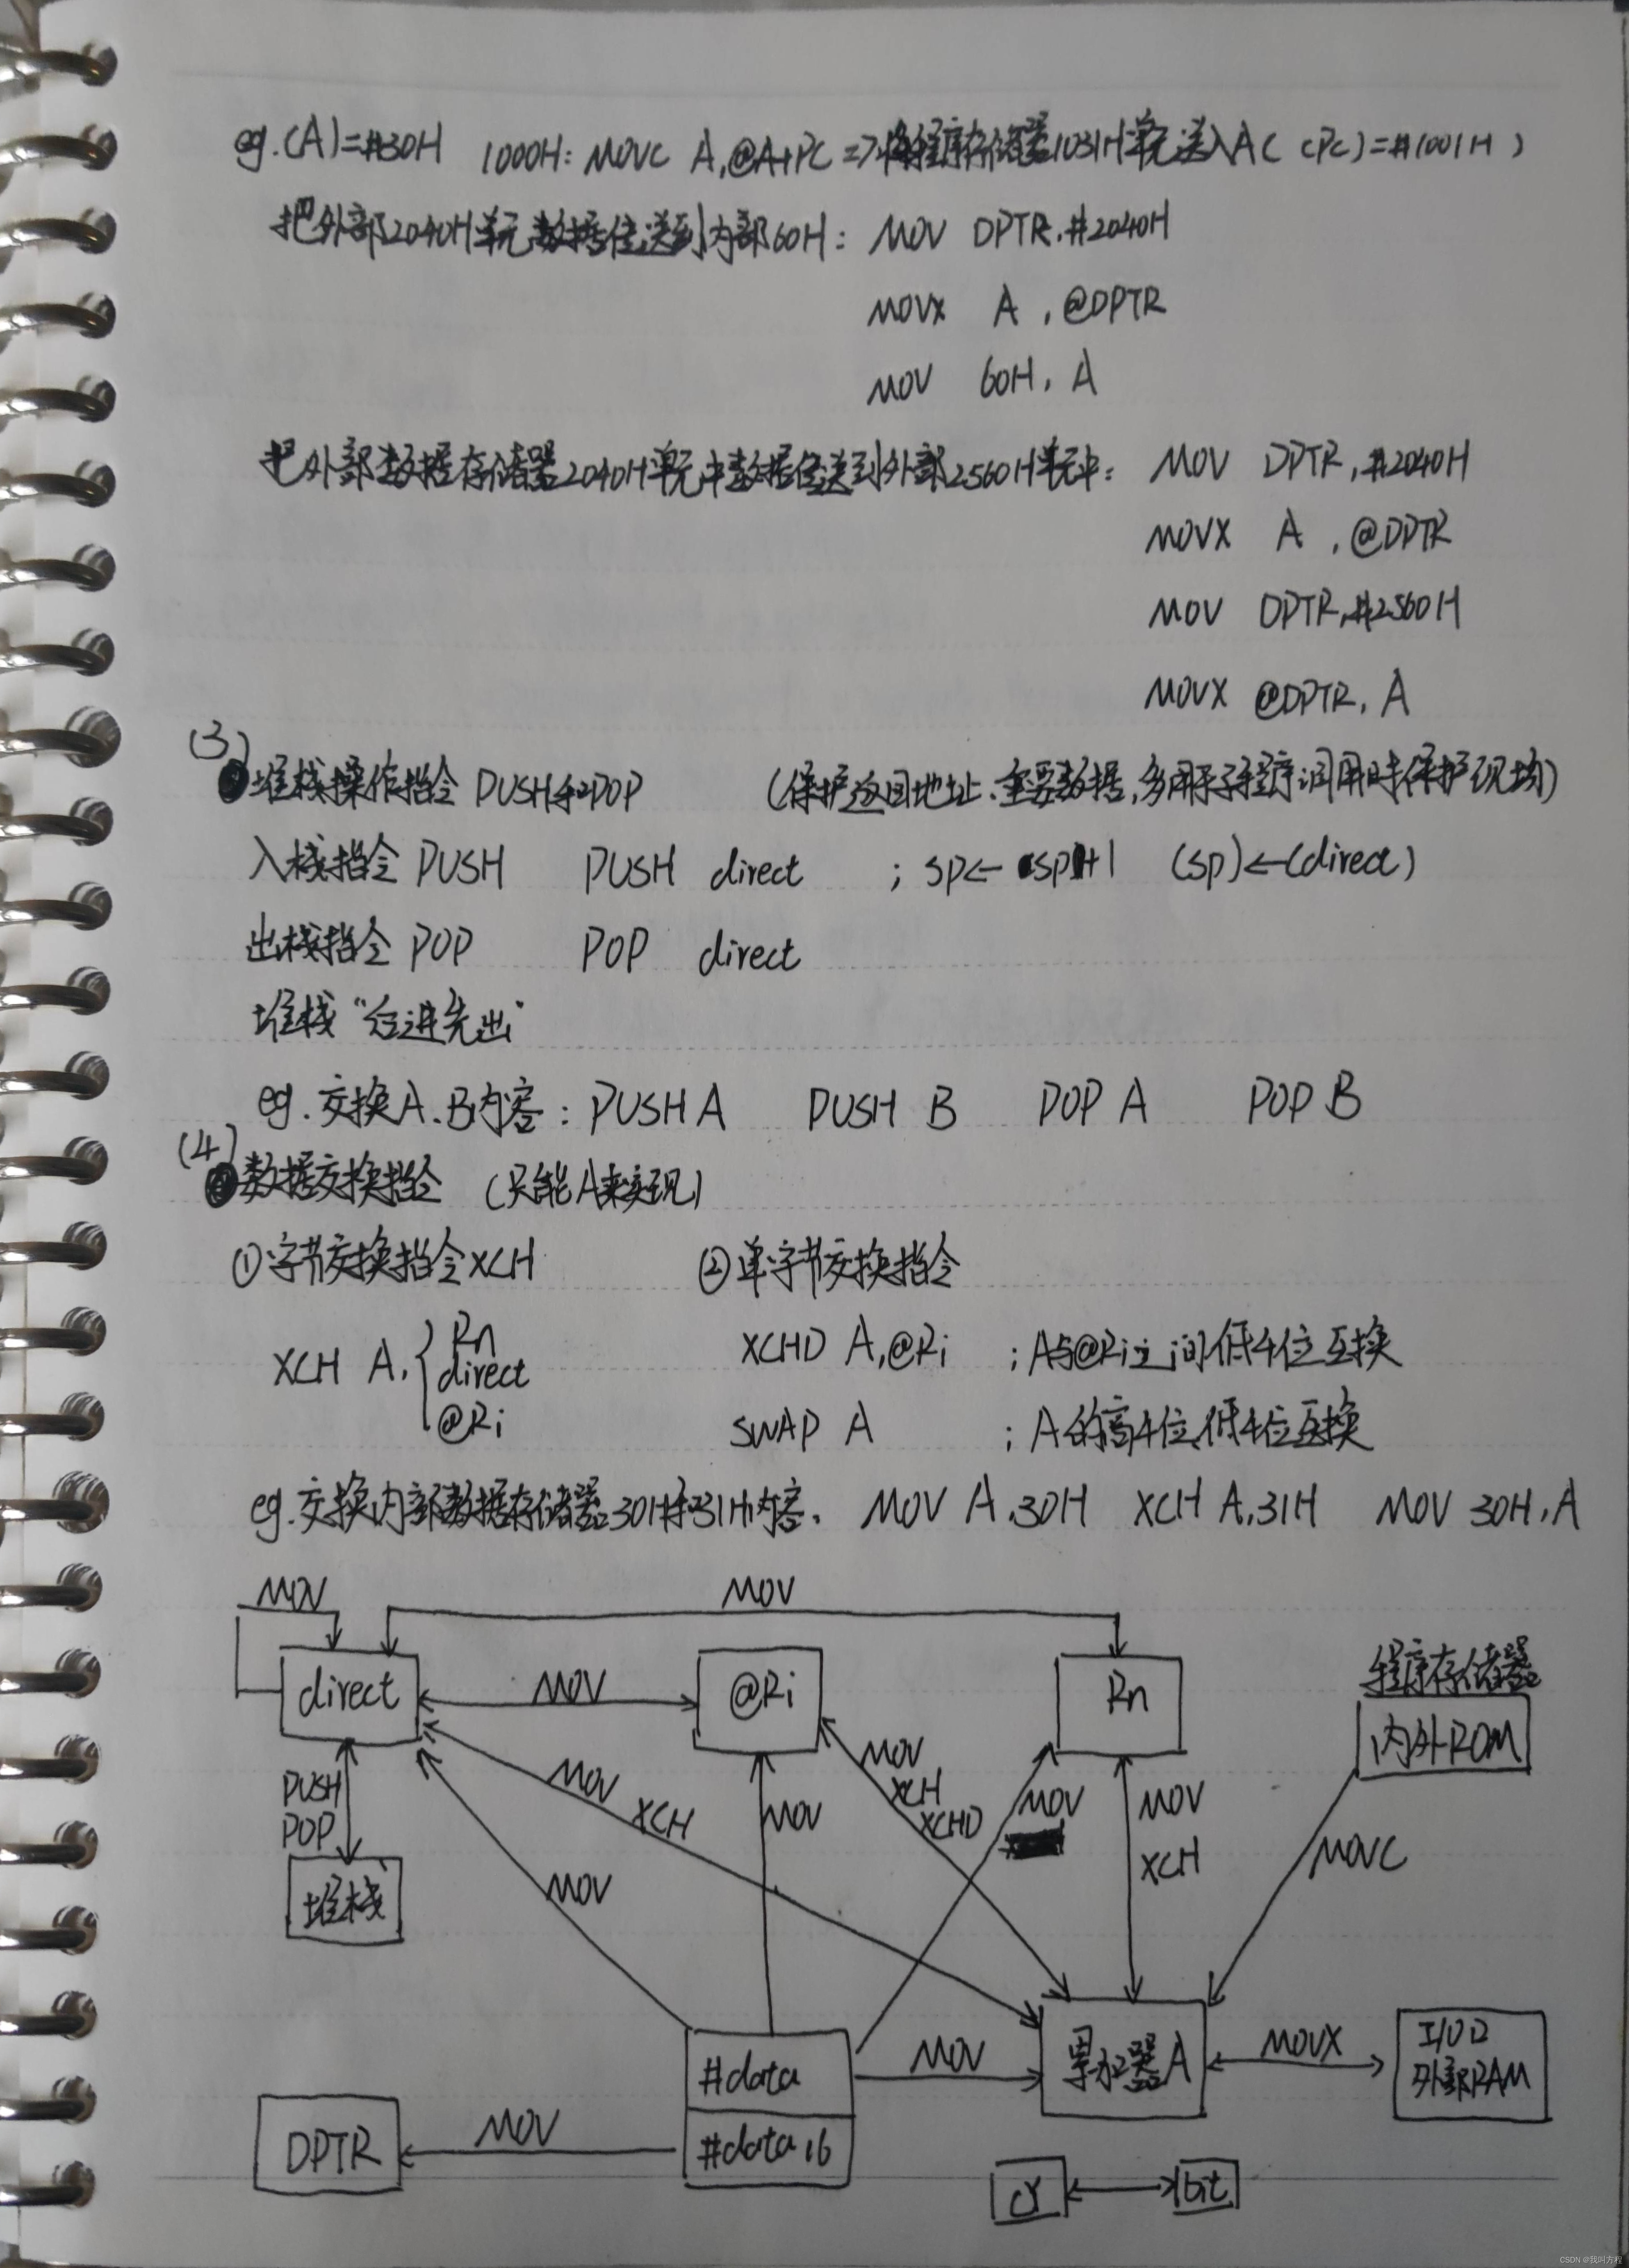 eg.(A)=#30H 1000H: MOVC A,@A+PC => 将程序存储器1031H单元送入A( (PC)=#1001H )
把外部2040H单元数据传送到内部60H: MOV DPTR,#2040H
MOVX A,@DPTR
MOV 60H,A
把外部数据存储器2040H单元中数据传送到外部2560H单元中: MOV DPTR,#2040H
MOVX A,@DPTR
MOV DPTR,#2560H
MOVX @DPTR,A
(3)
堆栈操作指令PUSH和POP (保护返回地址、重要数据,多用于子程序调用时保护现场)
入栈指令PUSH PUSH direct ; SP←SP+1 (SP)←(direct)
出栈指令POP POP direct
堆栈“后进先出”
eg.交换A、B内容: PUSH A PUSH B POP A POP B
(4)
数据交换指令 (只能A来实现)
①字节交换指令XCH ②单字节交换指令
XCH A,{ Rn
direct
@Ri
XCHD A,@Ri ;A与@Ri之间低4位互换
SWAP A ;A的高4位、低4位互换
eg.交换内部数据存储器30H和31H内容. MOV A,30H XCH A,31H MOV 30H,A
MOV MOV
程序存储器
direct MOV @Ri Rn 内外ROM
PUSH
POP
MOV XCH
MOV
MOV
XCH
XCHD
MOV
MOV
XCH
MOVC
堆栈
MOV
#data MOV 累加器A MOVX I/O口
外部RAM
DPTR MOV #data16
CY bit
CSDN @我叫方程